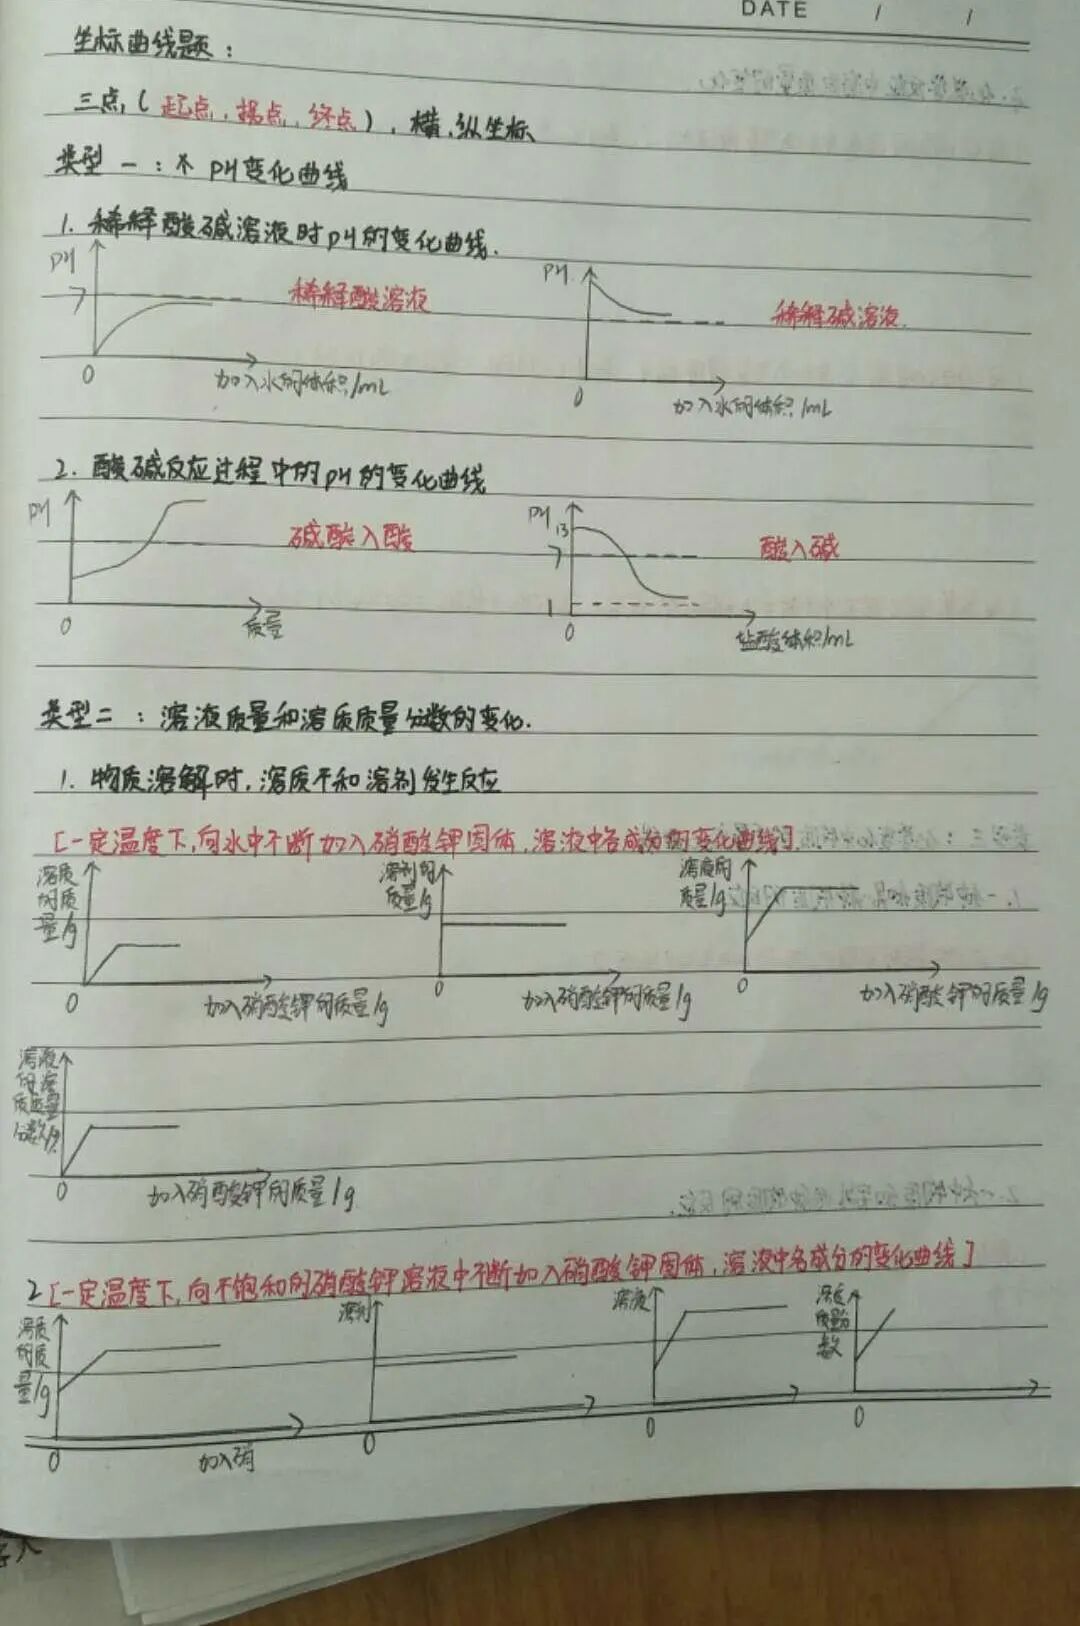 DATE / /
坐标曲线题：
三点（起点，拐点，终点），横，纵坐标
类型一：不 PH变化曲线
1. 稀释酸碱溶液时PH的变化曲线.
PH
7
稀释酸溶液
0
加入水的体积/mL
PH
稀释碱溶液.
0
加入水的体积/mL
2. 酸碱反应过程中的PH的变化曲线
PH
碱酸入酸
0
质量
PH
13
7
1
酸入碱
0
盐酸体积/mL
类型二：溶液质量和溶质质量分数的变化.
1. 物质溶解时，溶质不和溶剂发生反应
[一定温度下,向水中不断加入硝酸钾固体，溶液中各成分的变化曲线].
溶质
的质
量/g
0
加入硝酸钾的质量/g
溶剂的
质量/g
0
加入硝酸钾的质量/g
溶质的
质量/g
0
加入硝酸钾的质量/g
溶液
的溶
质质量
分数/%
0
加入硝酸钾的质量/g
2 [一定温度下,向不饱和的硝酸钾溶液中不断加入硝酸钾固体，溶液中各成分的变化曲线]
溶质
的质
量/g
0
加入硝
溶剂
0
溶液
0
溶质
质量分
数
0